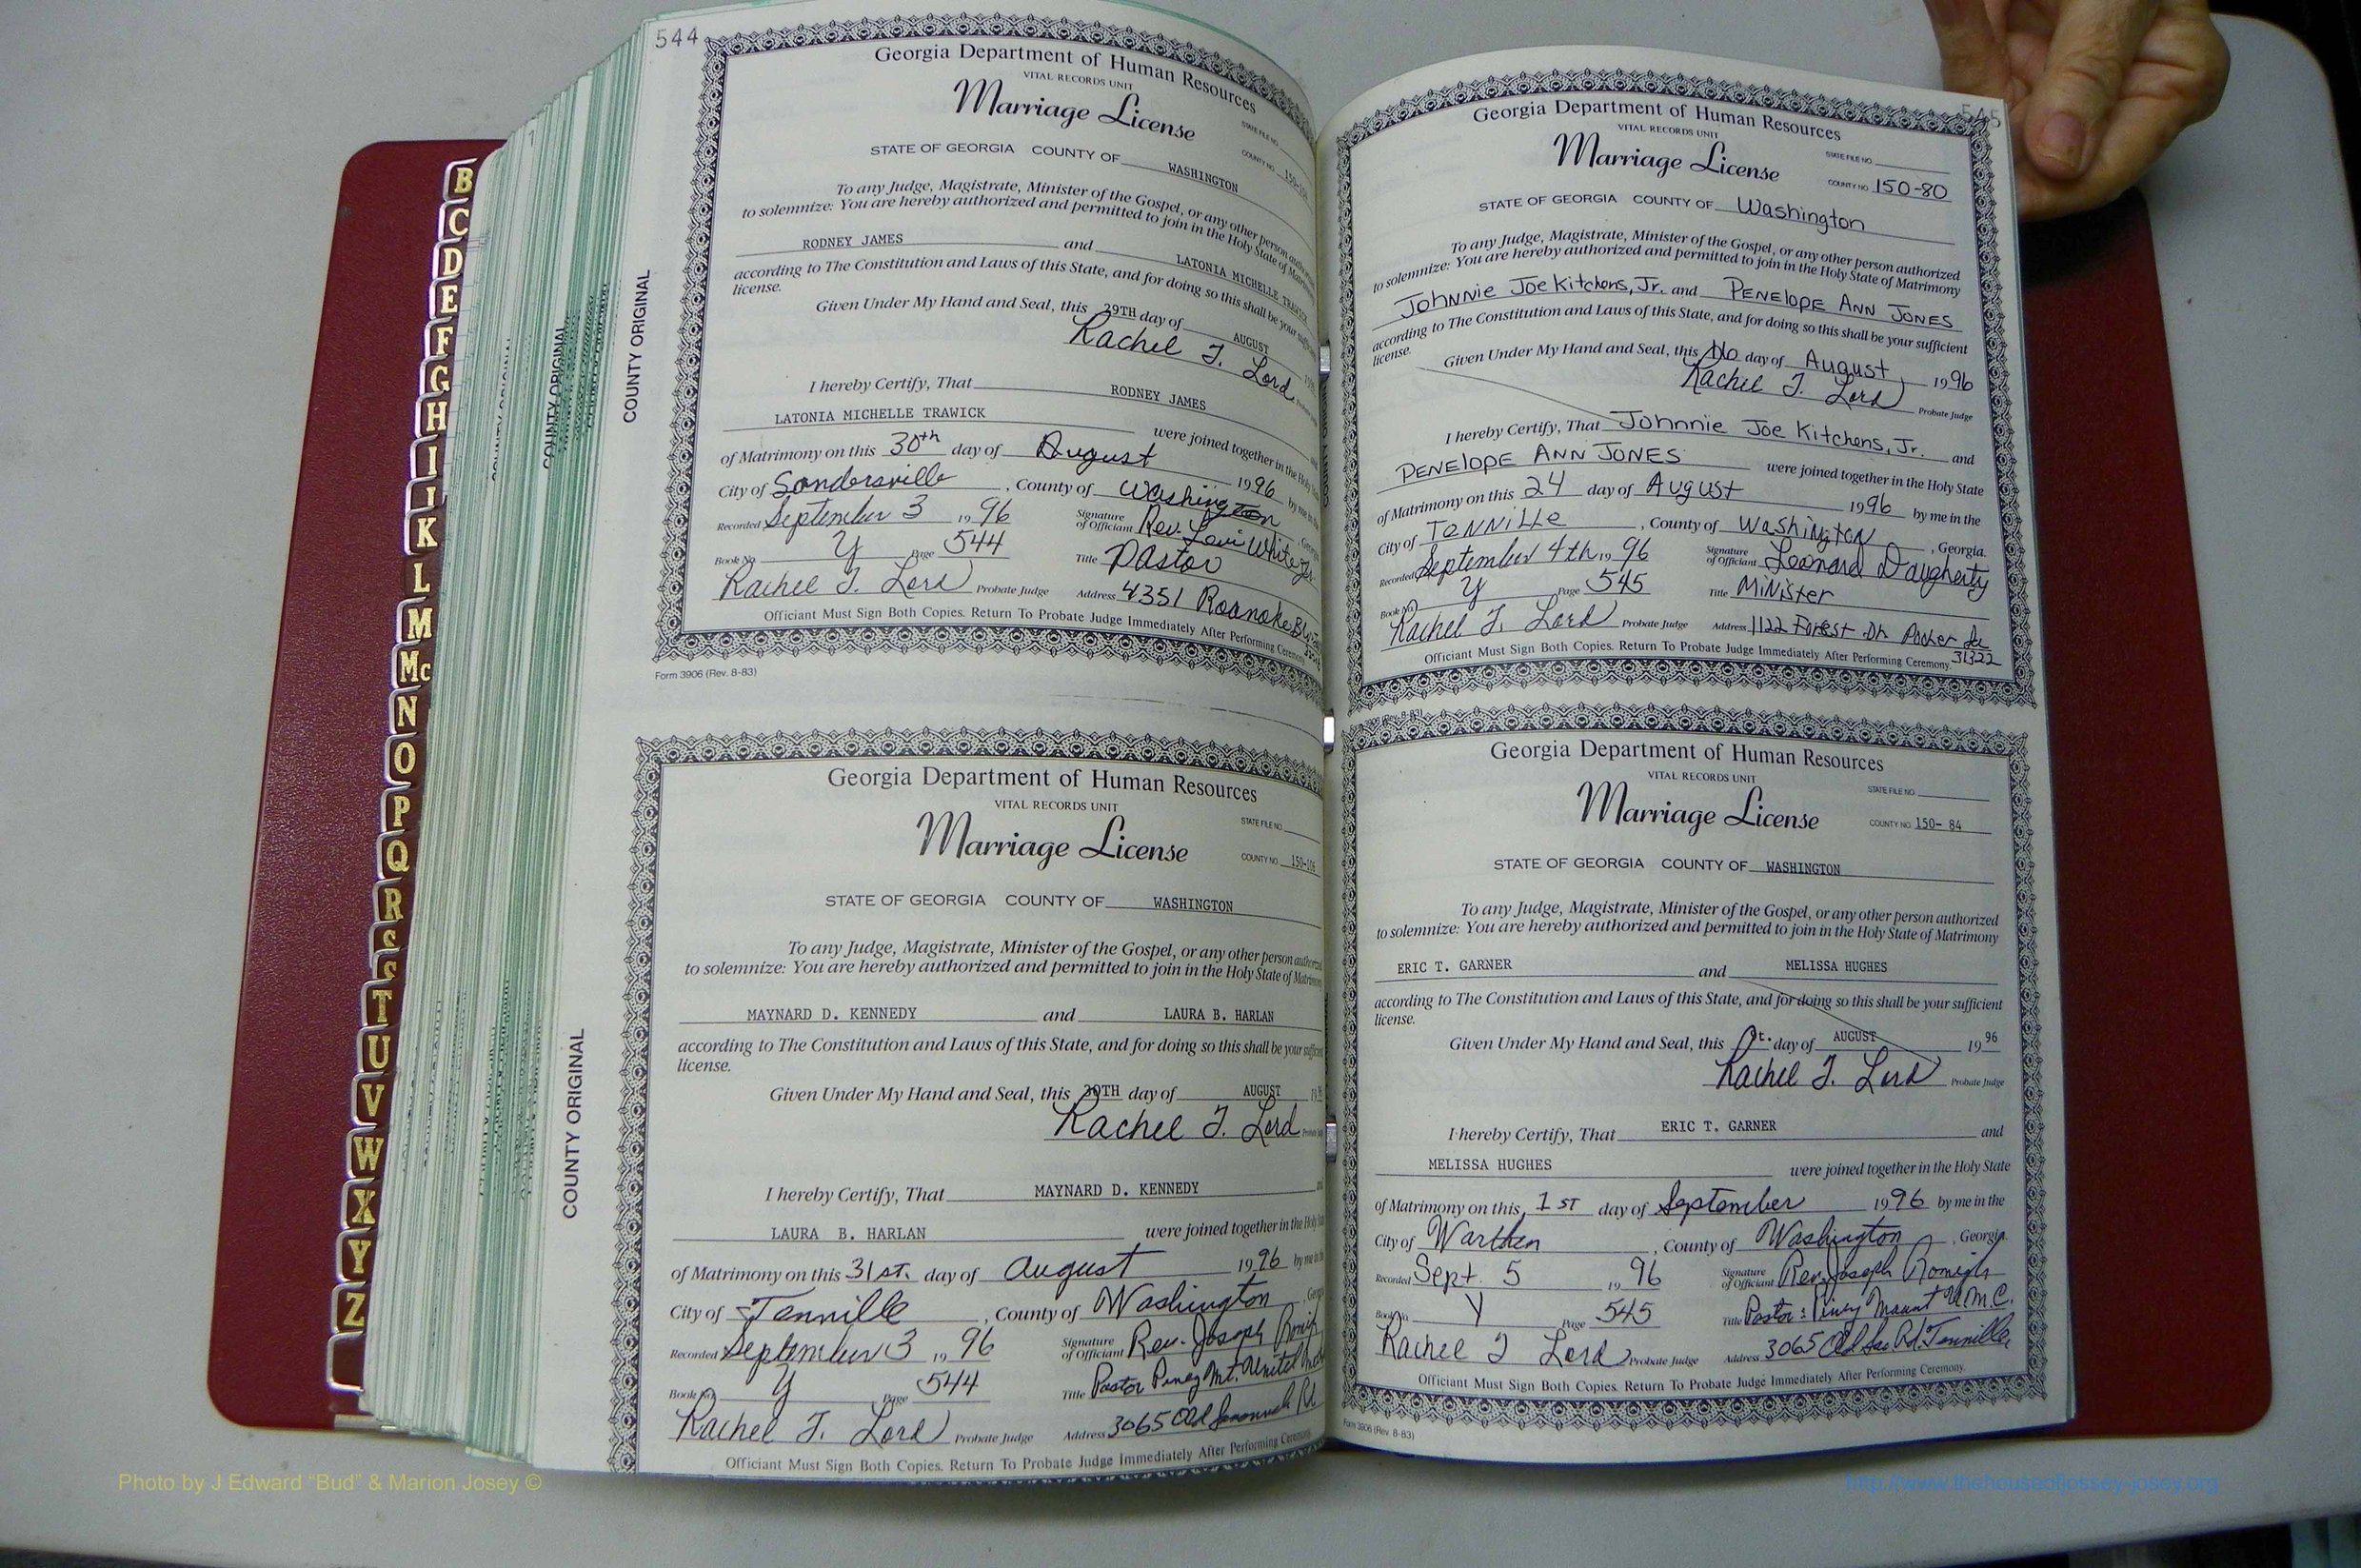 B
C
D
E
F
G
H
I
K
L
M
Mc
N
O
P
Q
R
S
T
U
V
W
X
Y
Z
COUNTY ORIGINAL
COUNTY ORIGINAL
COUNTY ORIGINAL
544
Georgia Department of Human Resources
VITAL RECORDS UNIT
Marriage License
STATE FILE NO.
COUNTY NO.
STATE OF GEORGIA COUNTY OF WASHINGTON
To any Judge, Magistrate, Minister of the Gospel, or any other person
to solemnize: You are hereby authorized and permitted to join in the Holy State of Matrimony
RODNEY JAMES and LATONIA MICHELLE TRAWICK
according to The Constitution and Laws of this State, and for doing so this shall be your
license.
Given Under My Hand and Seal, this 29TH day of AUGUST
Rachel T. Lord
I hereby Certify, That RODNEY JAMES
LATONIA MICHELLE TRAWICK were joined together in the Holy
of Matrimony on this 30th day of August 1996 by me in the
City of Sandersville, County of Washington
Recorded September 3 1996 Signature of Officiant Rev. Levi White Jr
Book No. Y Page 544 Title Pastor
Rachel T. Lord Probate Judge Address 4351 Roanoke
Officiant Must Sign Both Copies. Return To Probate Judge Immediately After Performing Ceremony
Form 3906 (Rev. 8-83)
Georgia Department of Human Resources
VITAL RECORDS UNIT
Marriage License
STATE FILE NO.
COUNTY NO. 150-106
STATE OF GEORGIA COUNTY OF WASHINGTON
To any Judge, Magistrate, Minister of the Gospel, or any other person authorized
to solemnize: You are hereby authorized and permitted to join in the Holy State of Matrimony
MAYNARD D. KENNEDY and LAURA B. HARLAN
according to The Constitution and Laws of this State, and for doing so this shall be your sufficient
license.
Given Under My Hand and Seal, this 30TH day of AUGUST
Rachel T. Lord
I hereby Certify, That MAYNARD D. KENNEDY
LAURA B. HARLAN were joined together in the Holy
of Matrimony on this 31st. day of August 1996 by me in
City of Tennille, County of Washington
Recorded September 3 1996 Signature of Officiant Rev. Joseph Romigh
Book No. Y Page 544 Title Pastor Piney Mt. United
Rachel T. Lord Probate Judge Address 3065 Old Savannah Rd
Officiant Must Sign Both Copies. Return To Probate Judge Immediately After Performing Ceremony.
545
Georgia Department of Human Resources
VITAL RECORDS UNIT
Marriage License
STATE FILE NO.
COUNTY NO. 150-80
STATE OF GEORGIA COUNTY OF Washington
To any Judge, Magistrate, Minister of the Gospel, or any other person authorized
to solemnize: You are hereby authorized and permitted to join in the Holy State of Matrimony
Johnnie Joe Kitchens, Jr. and PENELOPE ANN JONES
according to The Constitution and Laws of this State, and for doing so this shall be your sufficient
license.
Given Under My Hand and Seal, this day of August, 1996
Rachel T. Lord Probate Judge
I hereby Certify, That Johnnie Joe Kitchens, Jr. and
PENELOPE ANN JONES were joined together in the Holy State
of Matrimony on this 24 day of August 1996 by me in the
City of Tennille, County of Washington, Georgia.
Recorded September 4th 1996 Signature of Officiant Leonard Daugherty
Book No. Y Page 545 Title Minister
Rachel T. Lord Probate Judge Address 1122 Forest Dr. Pooler Ga
31322
Officiant Must Sign Both Copies. Return To Probate Judge Immediately After Performing Ceremony.
Georgia Department of Human Resources
VITAL RECORDS UNIT
Marriage License
STATE FILE NO.
COUNTY NO. 150- 84
STATE OF GEORGIA COUNTY OF WASHINGTON
To any Judge, Magistrate, Minister of the Gospel, or any other person authorized
to solemnize: You are hereby authorized and permitted to join in the Holy State of Matrimony
ERIC T. GARNER and MELISSA HUGHES
according to The Constitution and Laws of this State, and for doing so this shall be your sufficient
license.
Given Under My Hand and Seal, this day of AUGUST 1996
Rachel T. Lord Probate Judge
I hereby Certify, That ERIC T. GARNER and
MELISSA HUGHES were joined together in the Holy State
of Matrimony on this 1st day of September 1996 by me in the
City of Warthen, County of Washington, Georgia.
Recorded Sept. 5 1996 Signature of Officiant Rev. Joseph Romigh
Book No. Y Page 545 Title Pastor: Piney Mount U.M.C.
Rachel T Lord Probate Judge Address 3065 Old Sav Rd. Tennille,
Officiant Must Sign Both Copies. Return To Probate Judge Immediately After Performing Ceremony.
Form 3906 (Rev. 8-83)
Photo by J Edward "Bud" & Marion Josey ©
http://www.thehouseofjossey-josey.org